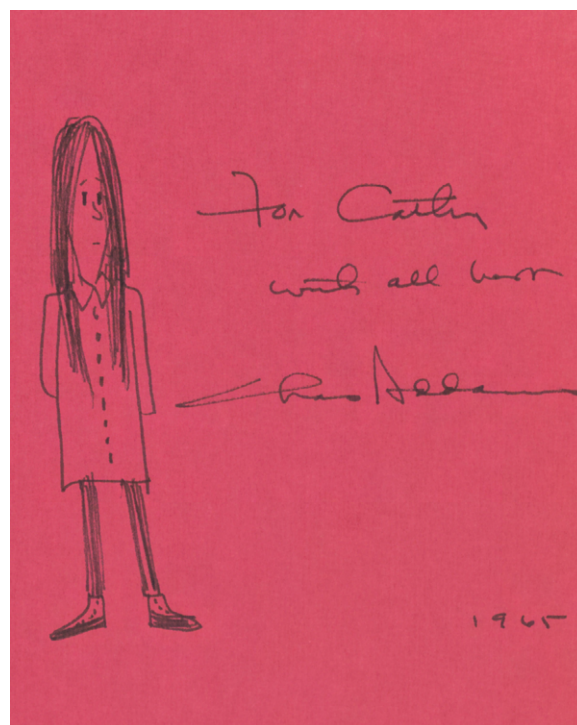 For Cathy
with all best
Chas Addams
1965